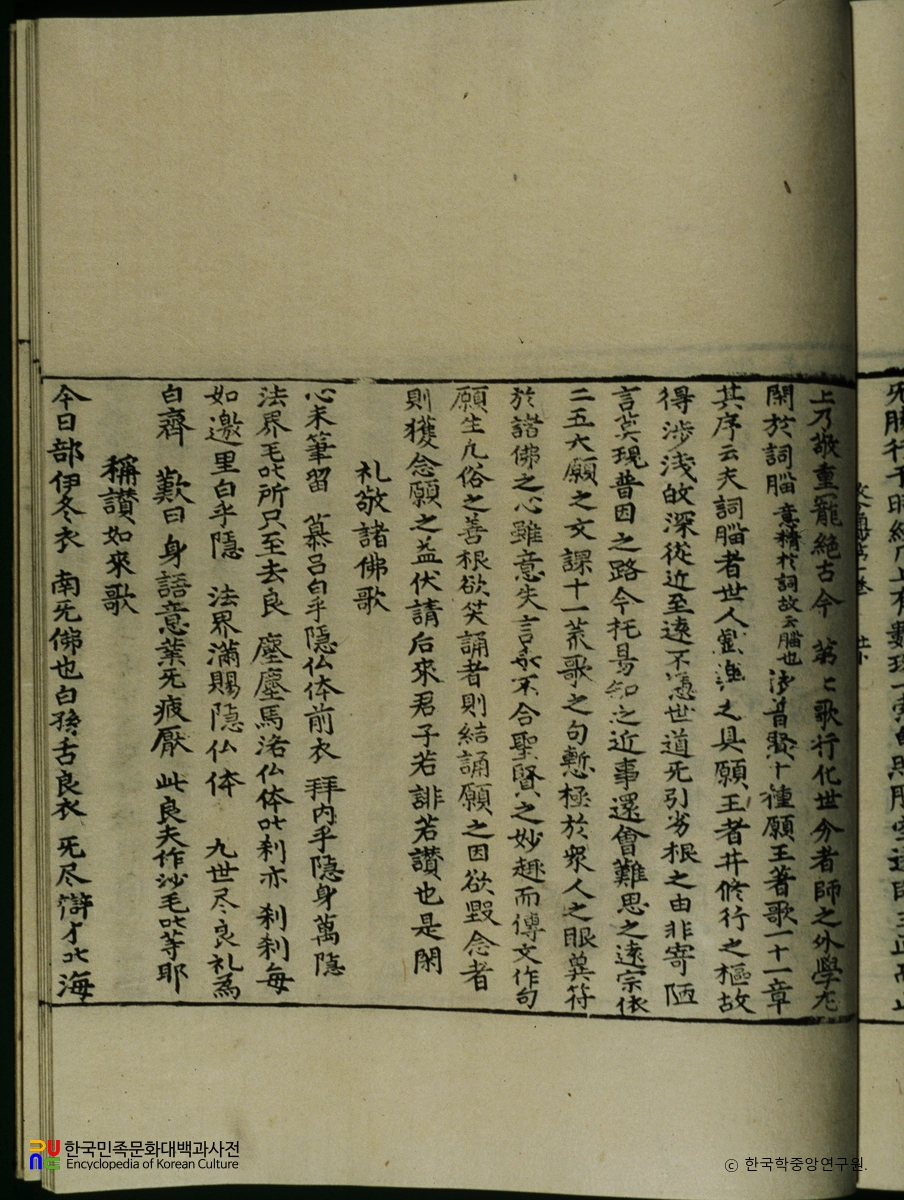 上乃敬重寵絶古今 第七歌行化世分者師之外學尤
閑於詞腦 意精於詞故云腦也 普賢十種願王著歌一十一章
其序云夫詞腦者世人戱樂之具願王者井修行之樞故
得渉淺攱深從近至遠不憑世道无引劣根之由非寄陋
言莫現普因之路今托易知之近事還會難思之遠宗依
二五大願之文課十一荒歌之句慙極於衆人之眼兾符
於諸佛之心雖意失言乖不合聖賢之妙趣而傳文作句
願生凡俗之善根欲笑誦者則結誦願之因欲毁念者
則獲念願之益伏請后來君子若誹若讃也是閑
礼敬諸佛歌
心未筆留 慕呂白乎隱仏体前衣 拜内乎隱身萬隱
法界毛叱所只至去良 塵塵馬洛仏体叱刹亦 刹刹每
如邀里白乎隱 法界滿賜隱仏体 九世尽良礼爲
白齊 歎曰身語意業无疲厭 此良夫作沙毛叱等耶
稱讃如來歌
今日部伊冬衣 南无佛也白孫舌良衣 无尽辯才叱海
한국민족문화대백과사전
Encyclopedia of Korean Culture
© 한국학중앙연구원.